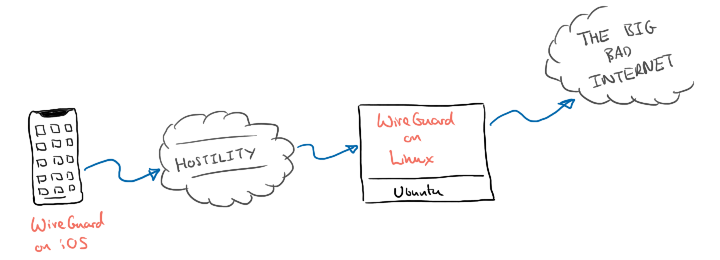 WireGuard
on iOS
HOSTILITY
WireGuard
on
Linux
Ubuntu
THE BIG
BAD
INTERNET